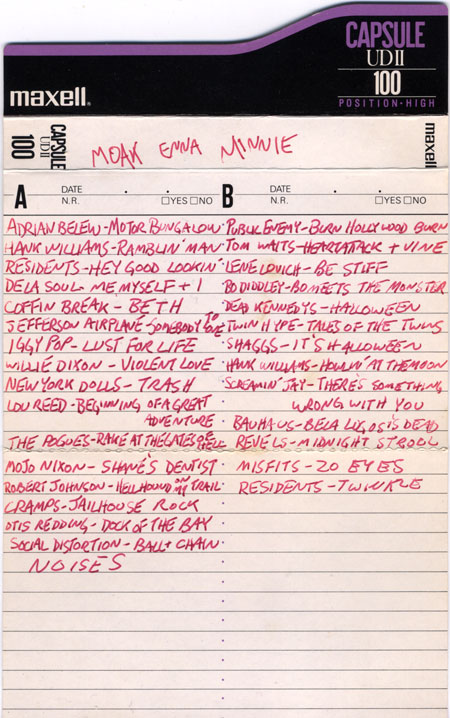 CAPSULE
UDII
100
POSITION·HIGH
maxell®
CAPSULE
UDII
100
MOAK ENNA MINNIE
maxell
A DATE . .
N.R. □YES □NO
ADRIAN BELEW-MOTOR BUNGALOW
HANK WILLIAMS-RAMBLIN' MAN
RESIDENTS-HEY GOOD LOOKIN'
DE LA SOUL-ME MYSELF + I
COFFIN BREAK-BETH
JEFFERSON AIRPLANE-SOMEBODY TO LOVE
IGGY POP-LUST FOR LIFE
WILLIE DIXON-VIOLENT LOVE
NEW YORK DOLLS-TRASH
LOU REED-BEGINNING OF A GREAT
ADVENTURE
THE POGUES-RAKE AT THE GATES OF HELL
MOJO NIXON-SHANE'S DENTIST
ROBERT JOHNSON-HELLHOUND ON MY TRAIL
CRAMPS-JAILHOUSE ROCK
OTIS REDDING-DOCK OF THE BAY
SOCIAL DISTORTION-BALL + CHAIN
NOISES
B DATE . .
N.R. □YES □NO
PUBLIC ENEMY-BURN HOLLYWOOD BURN
TOM WAITS-HEARTATTACK + VINE
LENE LOVICH-BE STIFF
BO DIDDLEY-BO MEETS THE MONSTER
DEAD KENNEDYS-HALLOWEEN
TWIN HYPE-TALES OF THE TWINS
SHAGGS-IT'S HALLOWEEN
HANK WILLIAMS-HOWLIN' AT THE MOON
SCREAMIN' JAY-THERE'S SOMETHING
WRONG WITH YOU
BAUHAUS-BELA LUGOSI'S DEAD
REVELS-MIDNIGHT STROLL
MISFITS-20 EYES
RESIDENTS-TWINKLE